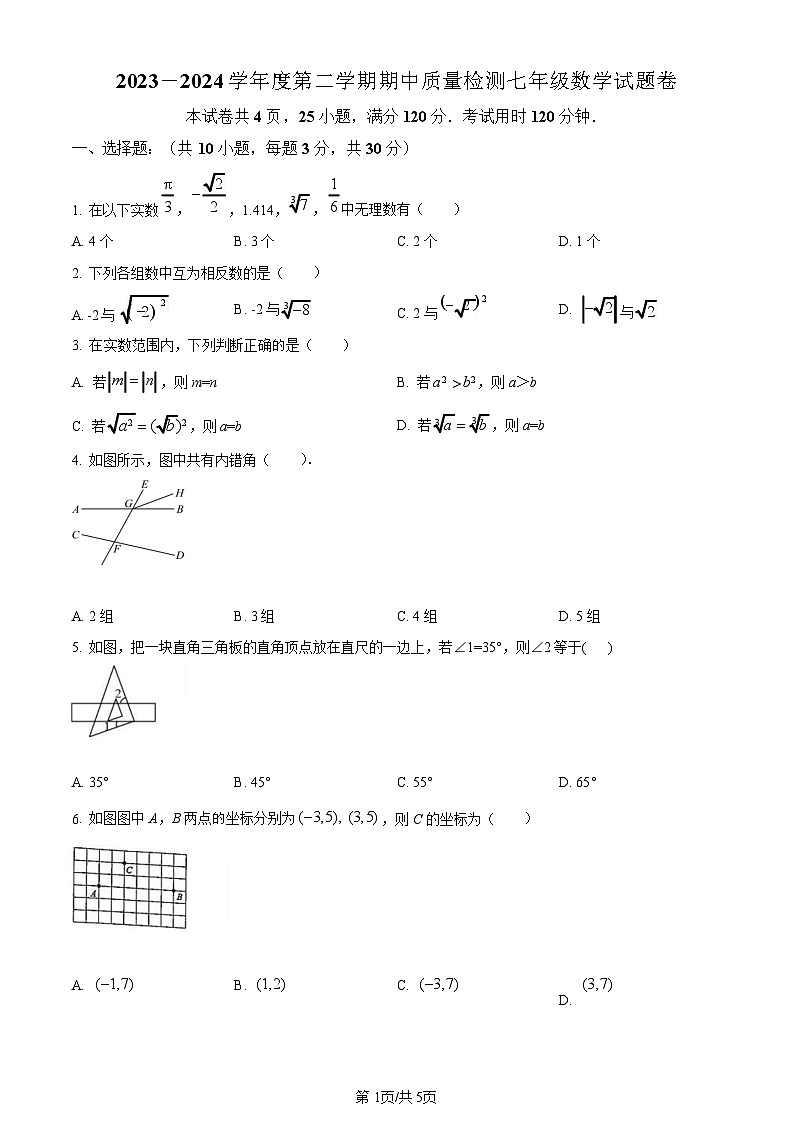 2023－2024学年度第二学期期中质量检测七年级数学试题卷
本试卷共4页，25小题，满分120分．考试用时120分钟．
一、选择题：（共10小题，每题3分，共30分）
1. 在以下实数 π/3，−√2/2，1.414，∛7，1/6 中无理数有（  ）
A. 4个 B. 3个 C. 2个 D. 1个
2. 下列各组数中互为相反数的是（  ）
A. -2与√(−2)² B. -2与∛−8 C. 2与(−√2)² D. |−√2|与√2
3. 在实数范围内，下列判断正确的是（  ）
A. 若|m|=|n|，则m=n B. 若a²>b²，则a＞b
C. 若√a²=(√b)²，则a=b D. 若∛a=∛b，则a=b
4. 如图所示，图中共有内错角（  ）．
E
H
G
A
B
C
F
D
A. 2组 B. 3组 C. 4组 D. 5组
5. 如图，把一块直角三角板的直角顶点放在直尺的一边上，若∠1=35°，则∠2等于(  )
2
1
A. 35° B. 45° C. 55° D. 65°
6. 如图图中A，B两点的坐标分别为(−3,5), (3,5)，则C的坐标为（  ）
C
A
B
A. (−1,7) B. (1,2) C. (−3,7) D. (3,7)
第1页/共5页